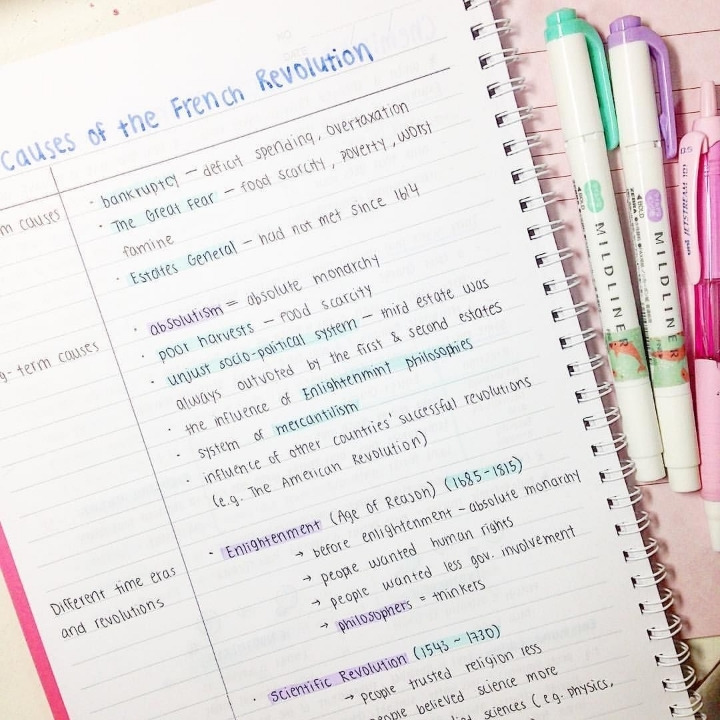 Causes of the French Revolution
m causes
· bankruptcy – deficit spending, overtaxation
· The Great Fear – food scarcity, poverty, worst
famine
· Estates General – had not met since 1614
g-term causes
· absolutism = absolute monarchy
· poor harvests – food scarcity
· unjust socio-political system – third estate was
always outvoted by the first & second estates
· the influence of Enlightenmint philosophies
· system of mercantilism
· influence of other countries' successful revolutions
(e.g. The American Revolution)
Different time eras
and revolutions
· Enlightenment (Age of Reason) (1685-1815)
→ before enlightenment – absolute monarchy
→ people wanted human rights
→ people wanted less gov. involvement
→ philosophers = thinkers
· Scientific Revolution (1543 ~ 1730)
→ people trusted religion less
people believed science more
sciences (e.g. physics,
MILDLINER
MILDLINER
uni JETSTREAM
0.5